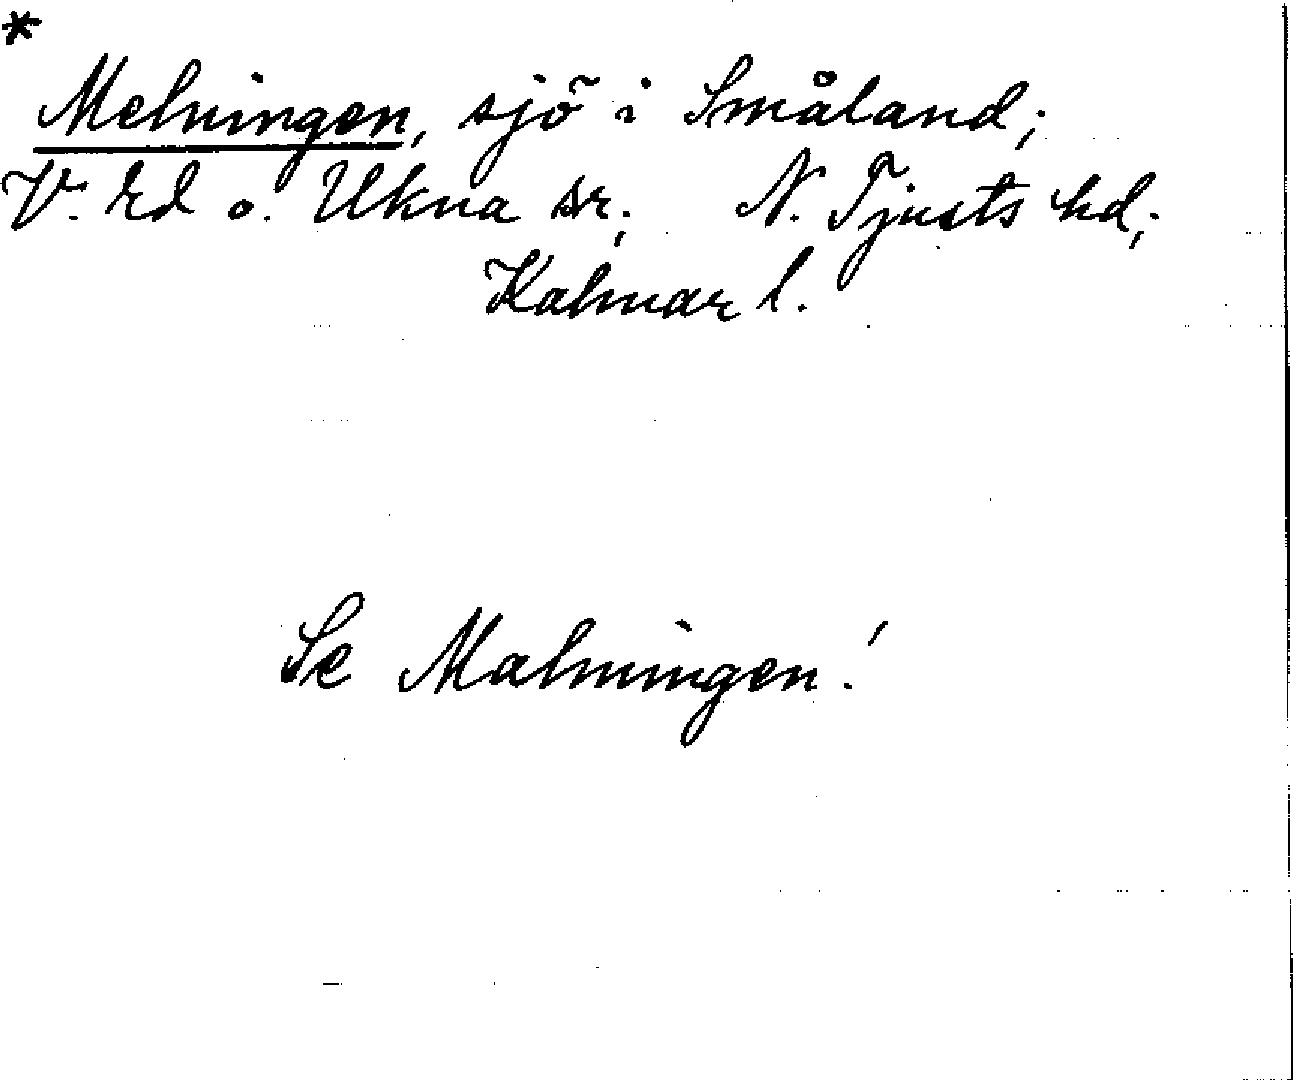 *
Melningen, sjö i Småland;
V. Ed o. Ukna sr; N. Tjusts hd;
Kalmar l.
Se Malmingen!